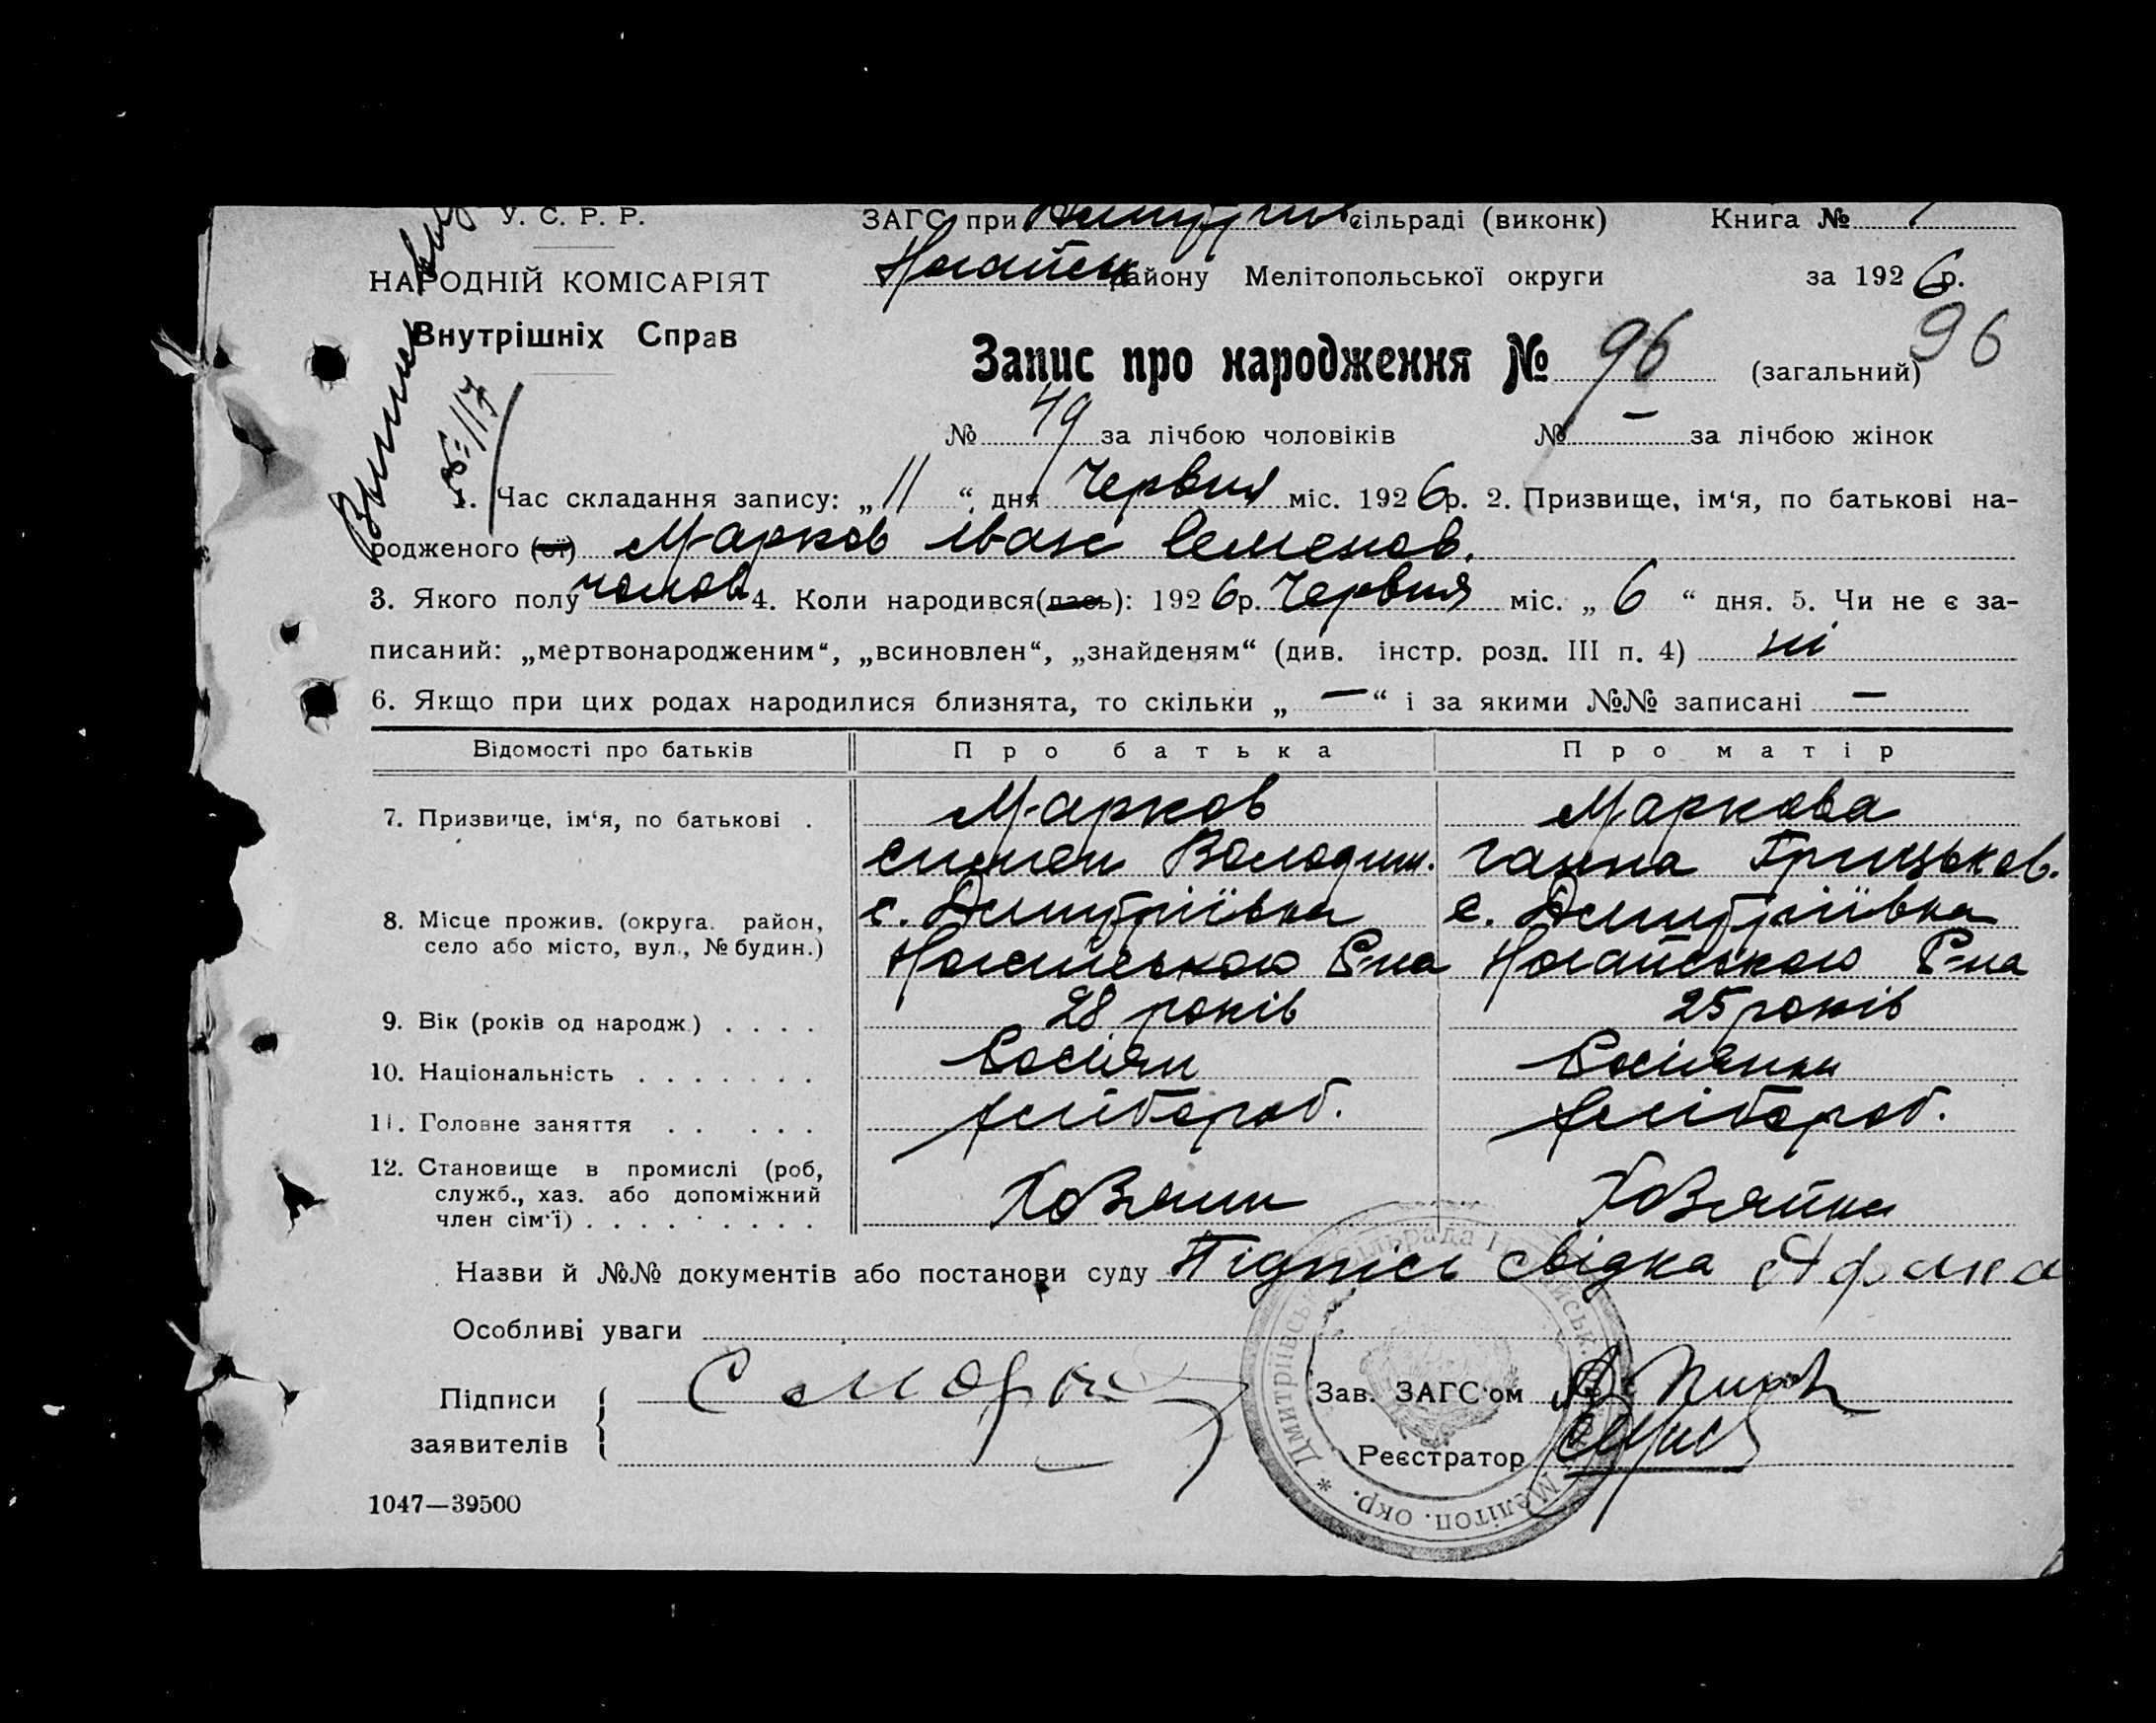 У. С. Р. Р.
НАРОДНІЙ КОМІСАРІЯТ
Внутрішніх Справ
ЗАГС при Дмитрів сільраді (виконк) Книга №
Ногайськ району Мелітопольської округи за 1926р.
Запис про народження № 96 (загальний) 96
№ 49 за лічбою чоловіків № — за лічбою жінок
1. Час складання запису: „11“ дня Червня міс. 1926р. 2. Призвище, ім‘я, по батькові на-
родженого (ої) Марков Іван Семенов.
3. Якого полу чолов 4. Коли народився(лась): 1926р. Червня міс. „6“ дня. 5. Чи не є за-
писаний: „мертвонародженим“, „всиновлен“, „знайденям“ (див. інстр. розд. III п. 4) ні
6. Якщо при цих родах народилися близнята, то скільки „—“ і за якими №№ записані —
Відомості про батьків Про батька Про матір
7. Призвище, ім‘я, по батькові . Марков Маркова
Симен Володим. Ганна Грицьков.
8. Місце прожив. (округа. район, с. Дмитріївка с. Дмитріївка
село або місто, вул., № будин.) Ногайського Р-на Ногайського Р-на
9. Вік (років од народж.) . . . . 28 років 25 років
10. Національність . . . . . . . Росіян Росіянка
11. Головне заняття . . . . . хлібороб. хлібороб.
12. Становище в промислі (роб,
служб., хаз. або допоміжний Хозяин Хозяйка
член сім‘ї) . . . . . . . . . .
Назви й №№ документів або постанови суду Підпісь свідка
Особливі уваги
Підписи
заявителів
Зав. ЗАГС‘ом
Реєстратор
* Дмитрівськ. Сільрада Мелітоп. окр.
1047—39500